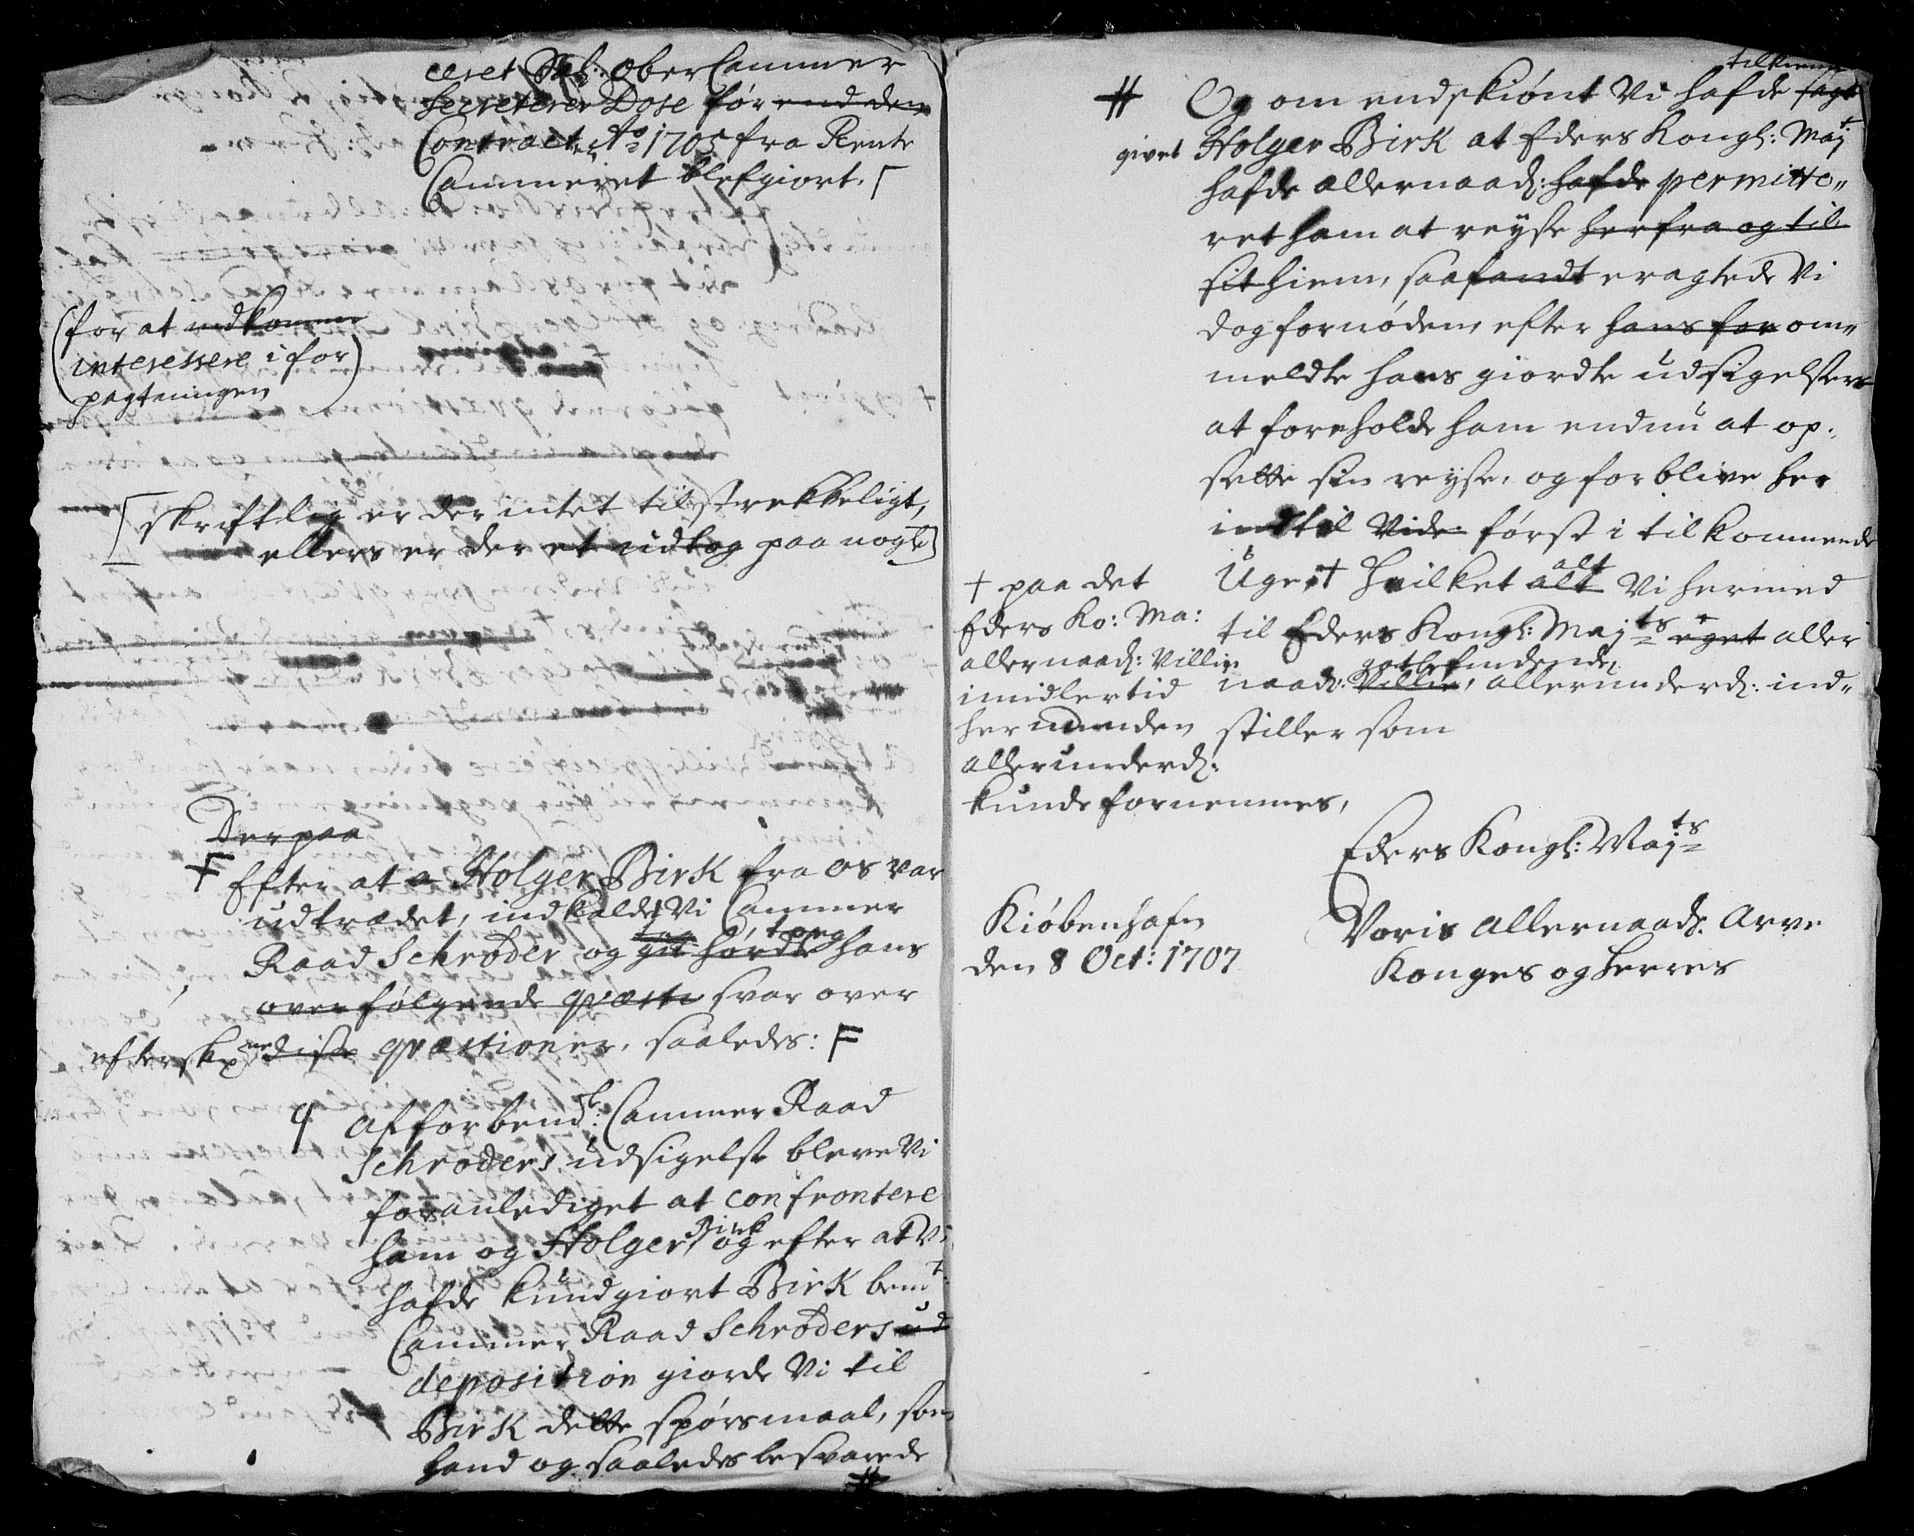 ceret Sal: Ober Cammer
Secreterer Dose før end den
Contract Ao 1705 fra Rente
Cammeret blef giort.
(for at indkomme
interessere i for
pagtningen)
[skriftlig er der intet tilstrekkeligt,
ellers er der et udtog paa nogle]
Der paa
F Efter at a Holger Birk fra os var
udtrædet, indkaldte Vi Cammer
Raad Schrøder og hørdte hans
over følgende qvæsti svar over
diße qvæstioner, saaledes: F
4 Af forbend.te: Cammer Raad
Schrøders udsigelse bleve Vi
foranlediget at confrontere
ham og Holger Birk og efter at Vi
hafde kundgiort Birk bemt.
Cammer Raad Schrøders ud
deposition giorde Vi til
Birk dette spørsmaal, som
hand og saaledes besvarede
#
# Og om endskiønt Vi hafde sagt
givet Holger Birk at Eders Kongl: Majt
hafde allernaad: hafde permitte„
ret ham at reyse herfra og til
sit hiem, saa fandt eragtede Vi
dog fornøden, efter hans for om„
meldte hans giordte udsigelser
at foreholde ham endnu at op„
sette sin reyse, og forblive her
indtil Vide først i tilkommende
Uge, + hvilket alt alt Vi hermed
til Eders Kongl: Majts eget aller
naad: Villie, gotbefindende, allerunderd: ind„
stiller som
+ paa det
Eders Ko: Ma:
allernaad: Villie
imidlertid
her
allerunderd:
kunde fornemmes,
Eders Kongl: Majts
Kiøbenhafn
den 8 Oct: 1707
Voris Allernaads. Arve
Konges og Herres